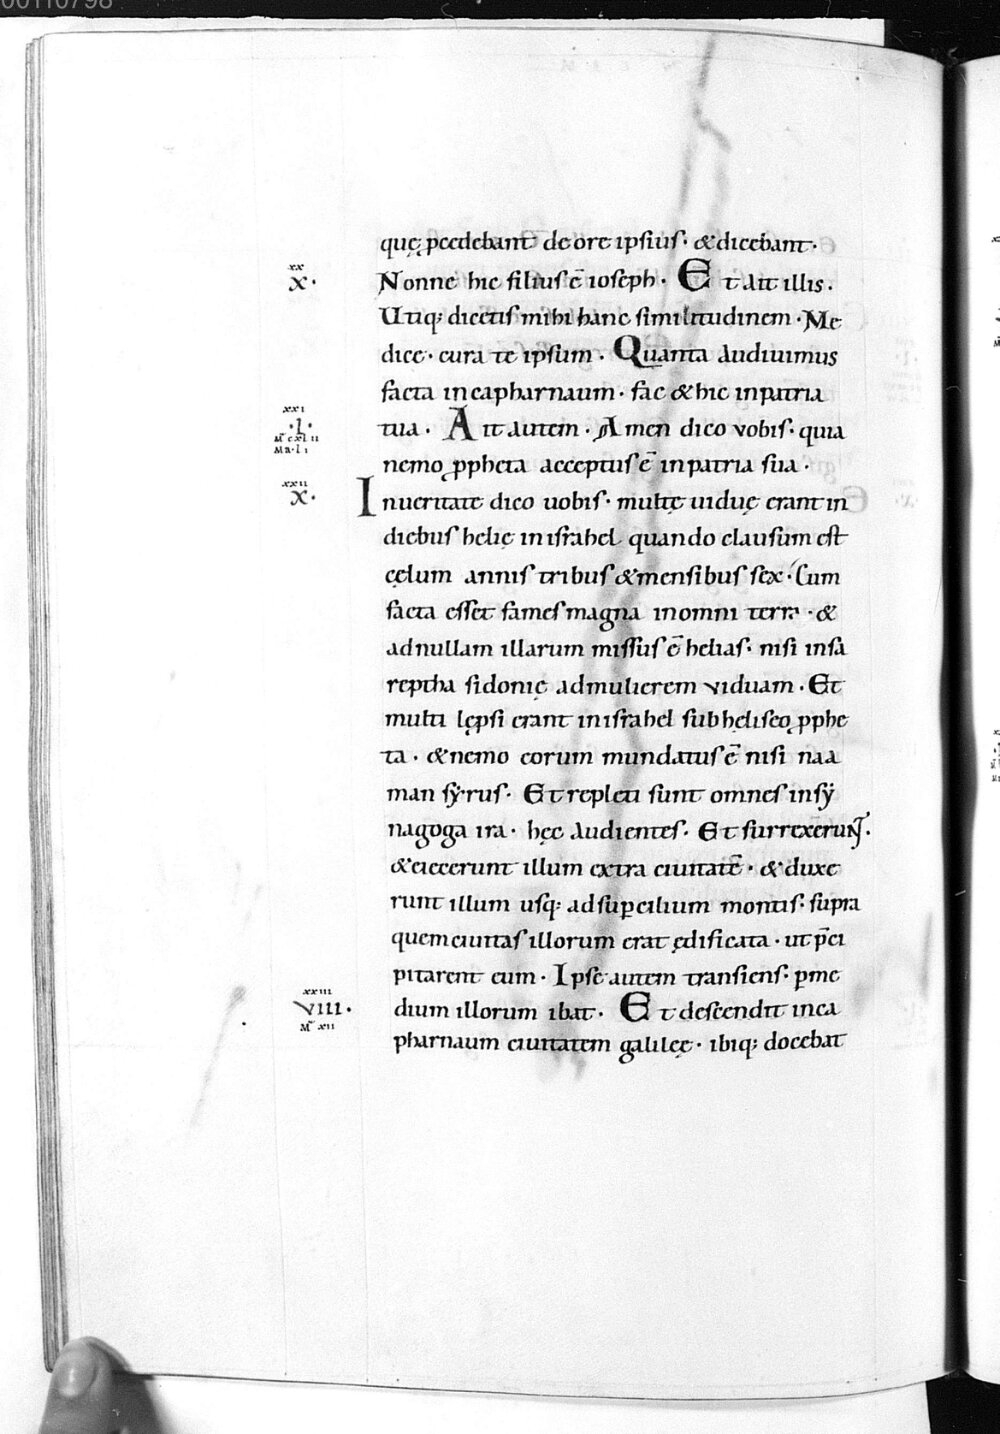 00110798
quę p̱cedebant de ore ipsius· &dicebant·
xx
X·
Nonne hic filius ē ioseph· Et ait illis·
Utiq; dicetis mihi hanc similitudinem· Me
dice· cura te ipsum· Quanta audiuimus
facta in capharnaum· fac & hic in patria
xxi
·I·
M̄ cxlii
Ma·li
tua· Ait autem· Amen dico vobis· quia
nemo ꝓpheta acceptus ē in patria sua·
xxii
X·
In ueritate dico uobis· multę uiduę erant in
diebus helię in israhel quando clausum est
cęlum annis tribus & mensibus sex· Cum
facta esset fames magna in omni terra· &
ad nullam illarum missus ē helias· nisi in sa
reptha sidonię ad mulierem viduam· Et
multi lępsi erant in israhel sub heliseo ꝓphe
ta· & nemo eorum mundatus ē nisi naa
man syrus· Et repleti sunt omnes in sy
nagoga ira· hęc audientes· Et surrexerunt·
& eiecerunt illum extra ciuitatē· & duxe
runt illum usq; ad sup̱cilium montis· supra
quem ciuitas illorum erat ędificata· ut p̄ci
pitarent eum· Ipse autem transiens· p̱ me
xxiii
VIII·
M̄ xii
dium illorum ibat· Et descendit in ca
pharnaum ciuitatem galilęę· ibiq; docebat